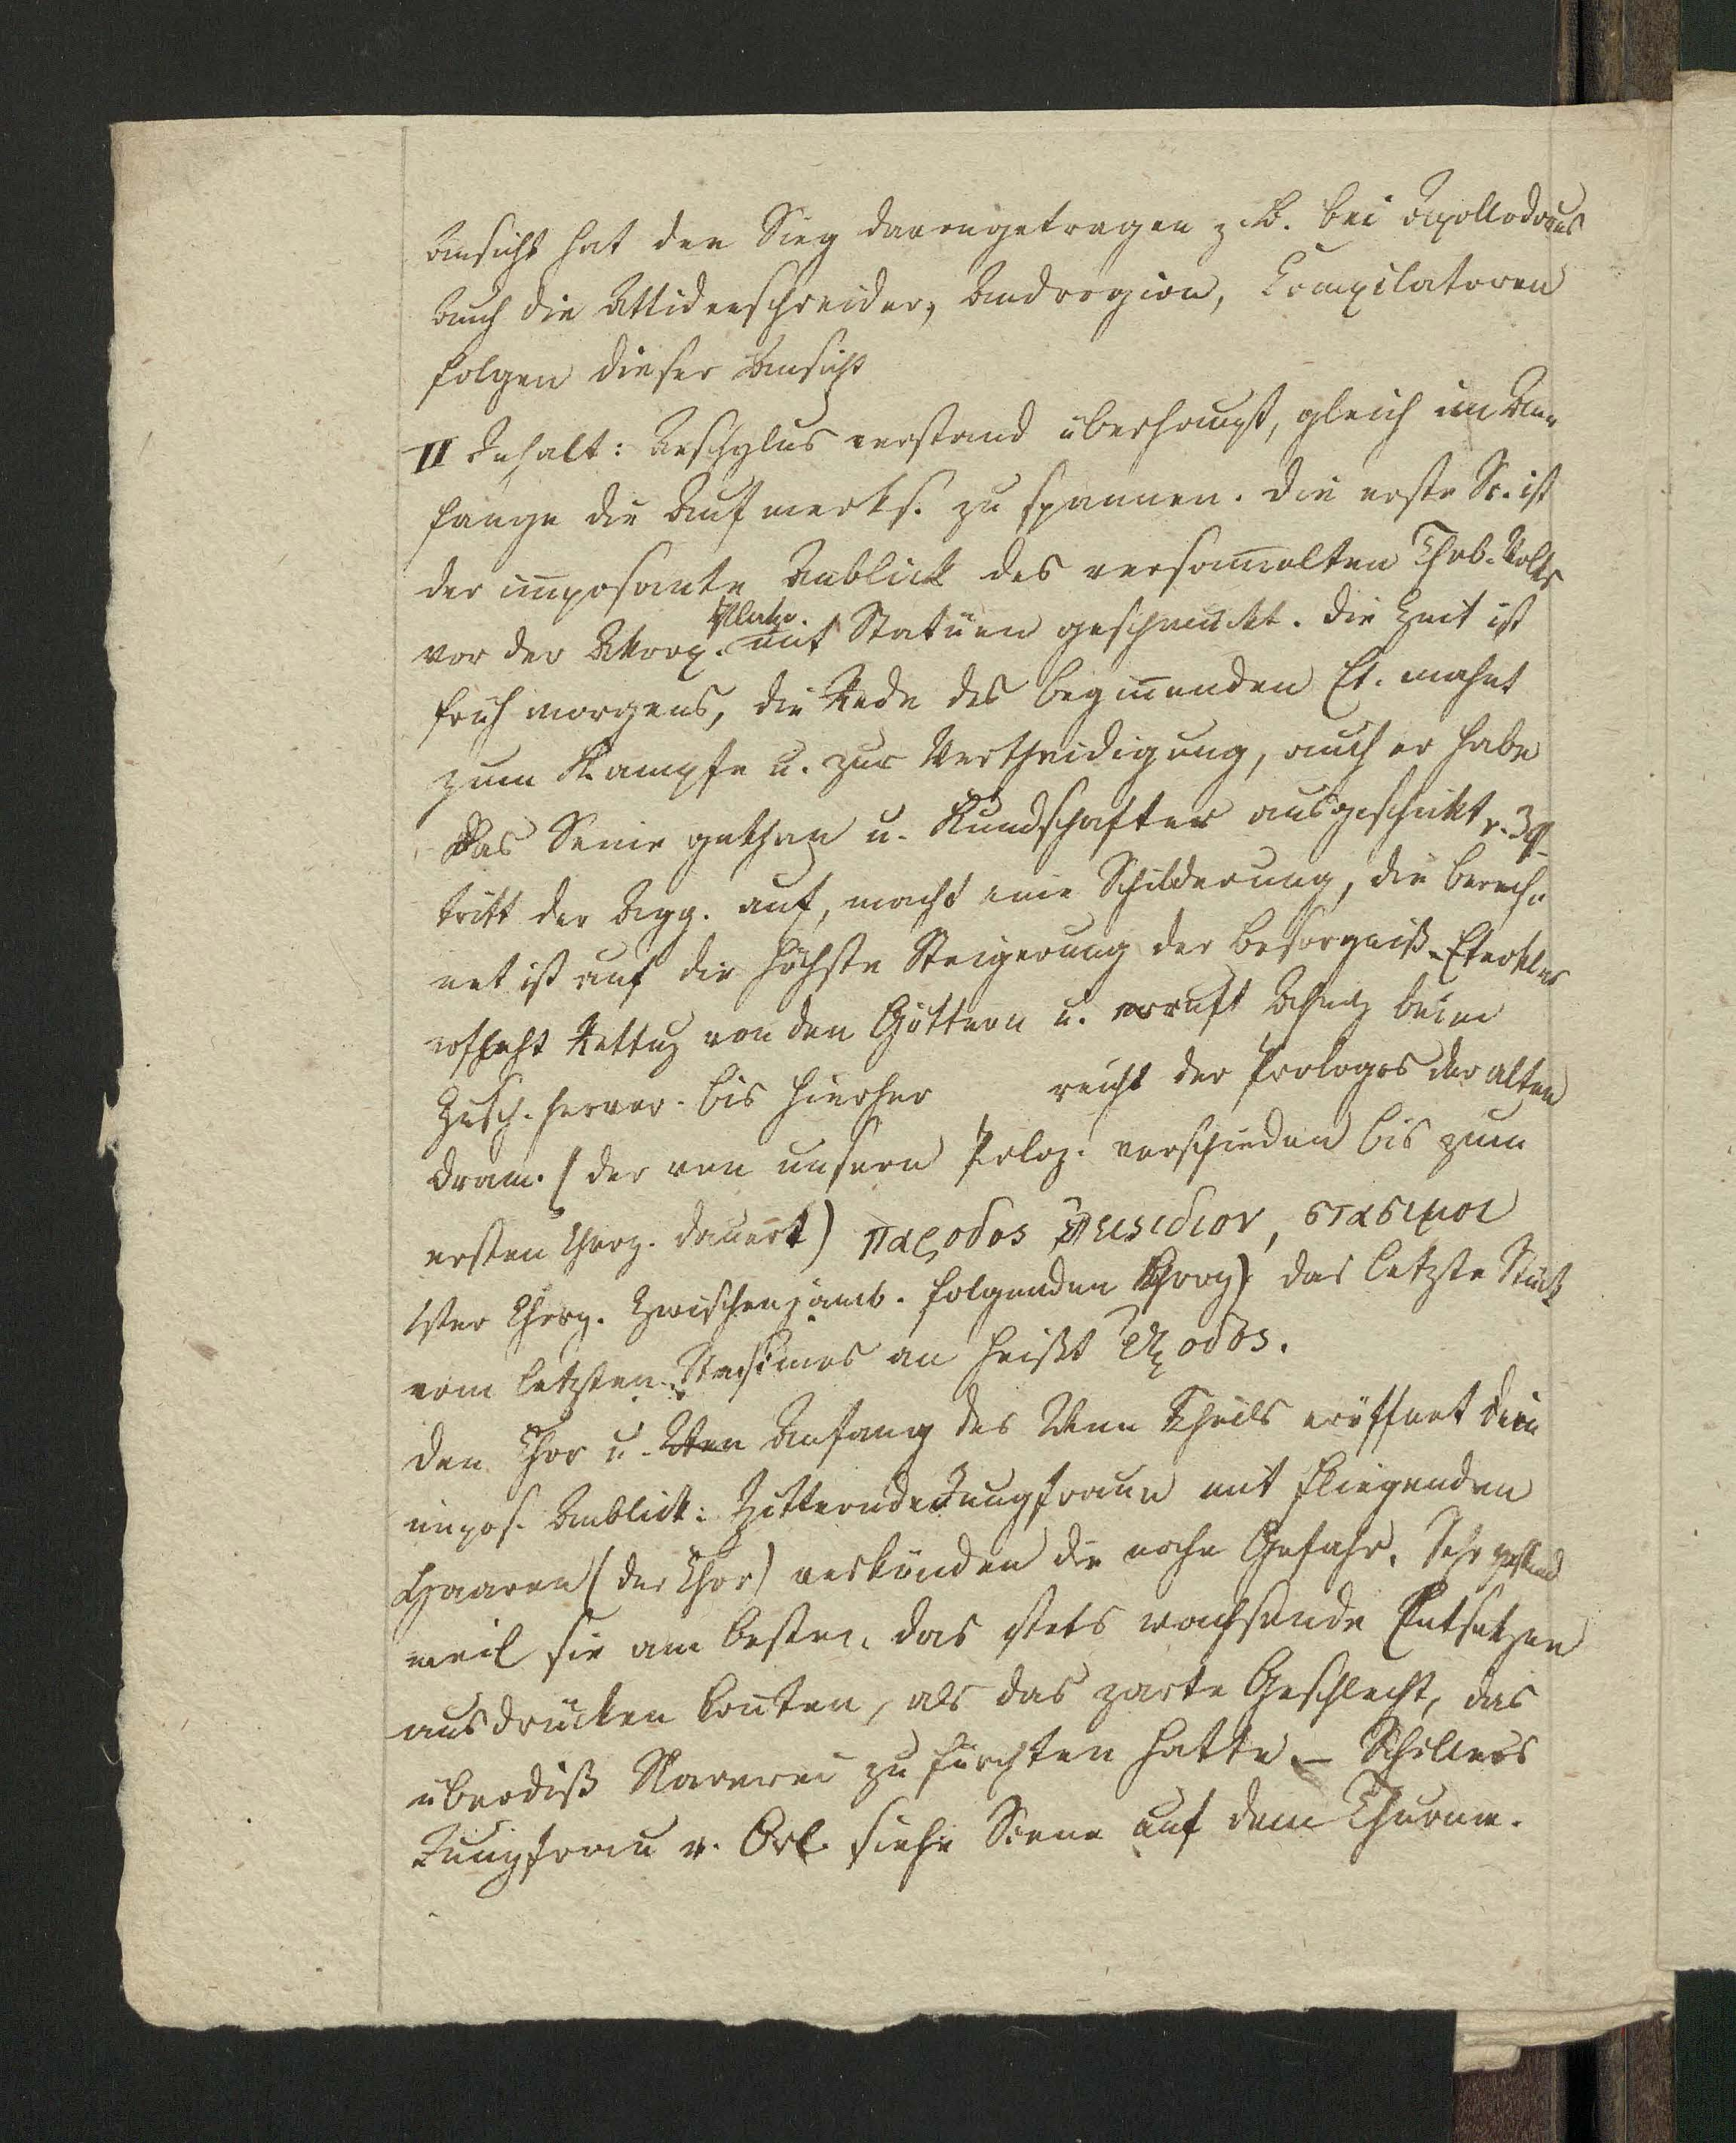 Ansicht hat den Sieg davongetragen z. B. bei Apollodorus
Auch die Attidenschreiber, Androgion, Compilatoren
folgen dieser Ansicht
II Inhalt: Aeschylus verstand überhaupt, gleich im An-
fange die Aufmerks. zu spannen. Die erste Sc. ist
der imposante Anblick des versam̄elten Theb. Volks
Platze.
vor der Akrop. mit Statüen geschmückt. Die Zeit ist
früh morgens, die Rede des begin̄enden Et. mahnt
zum Kampfe u. zur Vertheidigung, auch er habe
das Seine gethan u. Kundschafter ausgeschikt v. 39
tritt der Agg. auf, macht eine Schilderung, die berech-
net ist auf die höchste Steigerung der Besorgniß. Eteokles
erfleht Rettung von den Göttern u. ruft beim
Zusch. hervor. Bis hierher reicht der Prologos der alten
Dram. (der von unserm Prolog. verschieden bis zum
ersten Chorg. dauert) παροδος επεισιδιον, στασιμοι
1ster Chorg. Zwischen jamb. folgenden Chorg) das letzte Stück
vom letzten Stasimos an heißt Εξοδος.
Den Chor u. Anfang des IIten Theils eröffnet ein
impos. Anblick: Zitternde Jungfrauen mit fliegenden
Haaren (der Chor) verkünden die nahe Gefahr. Sehr
weil sie am besten das stets wachsende Entsetzen
ausdrücken kon̄ten, als das zarte Geschlecht, das
überdiß Sklaverei zu fürchten hatte. – Schillers
Jungfrau v. Orl. siehe Scene auf dem Thurme.